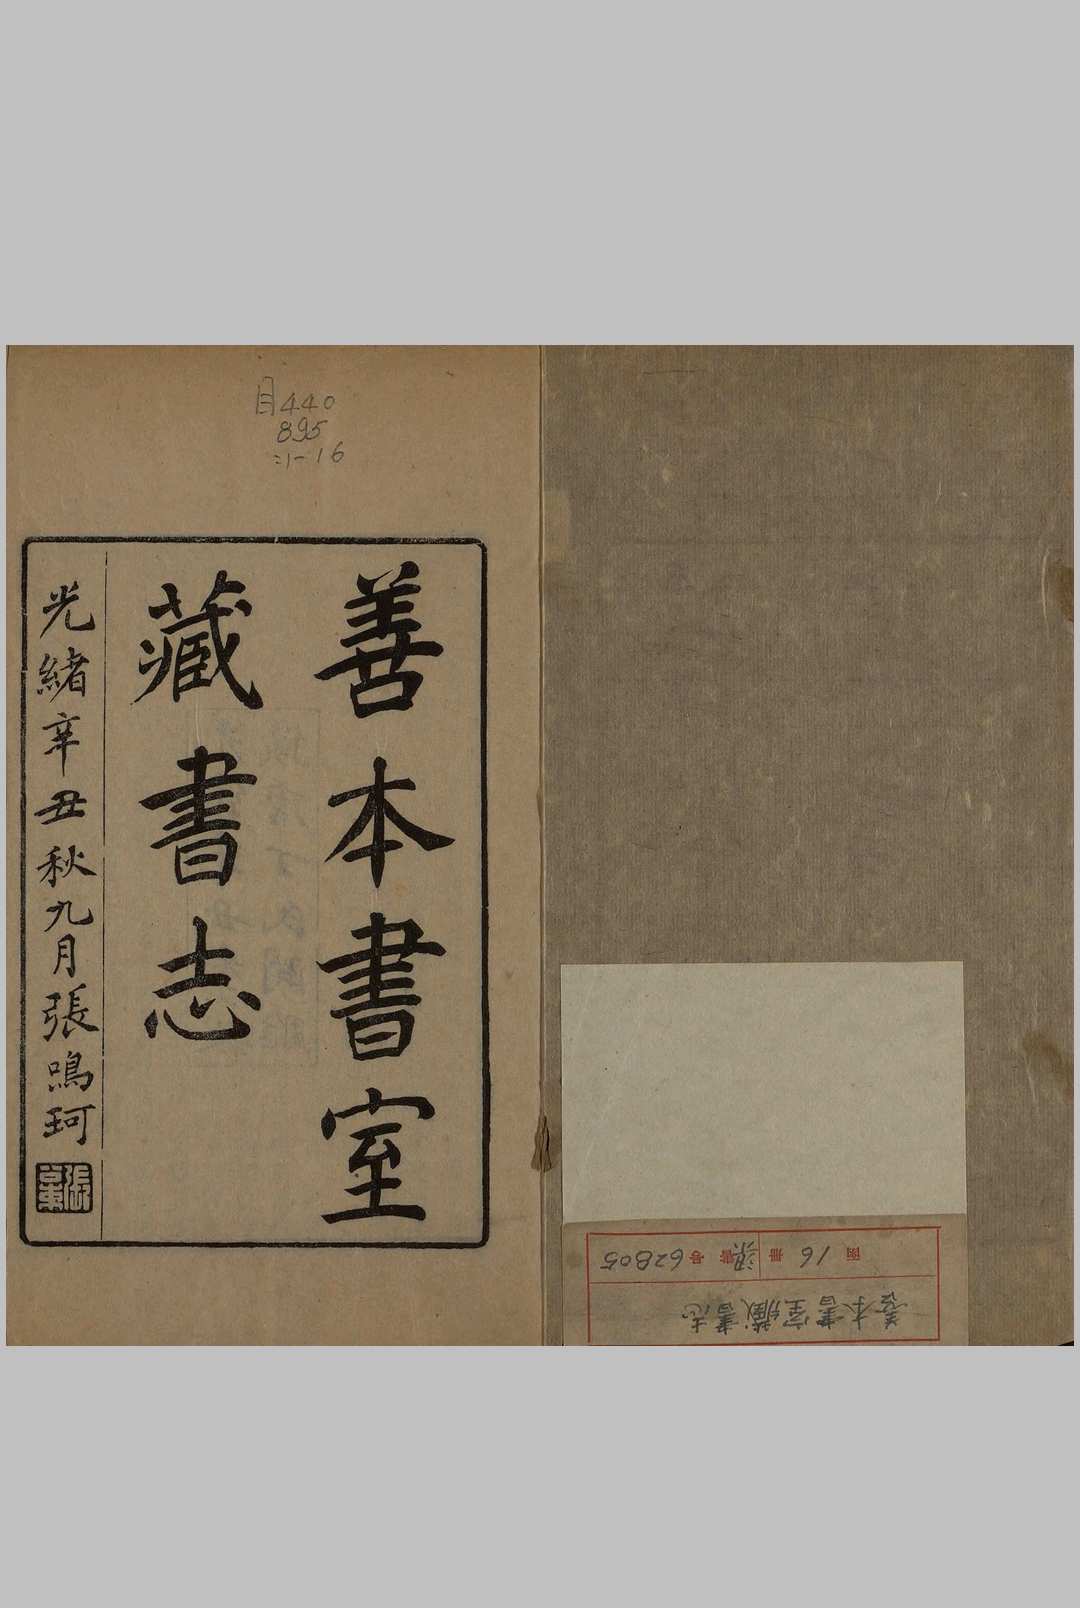 目440
895
:1-16
善本書室
藏書志
光緒辛丑秋九月張鳴珂
函 16 冊 梁 號 62805
善本書室藏書志